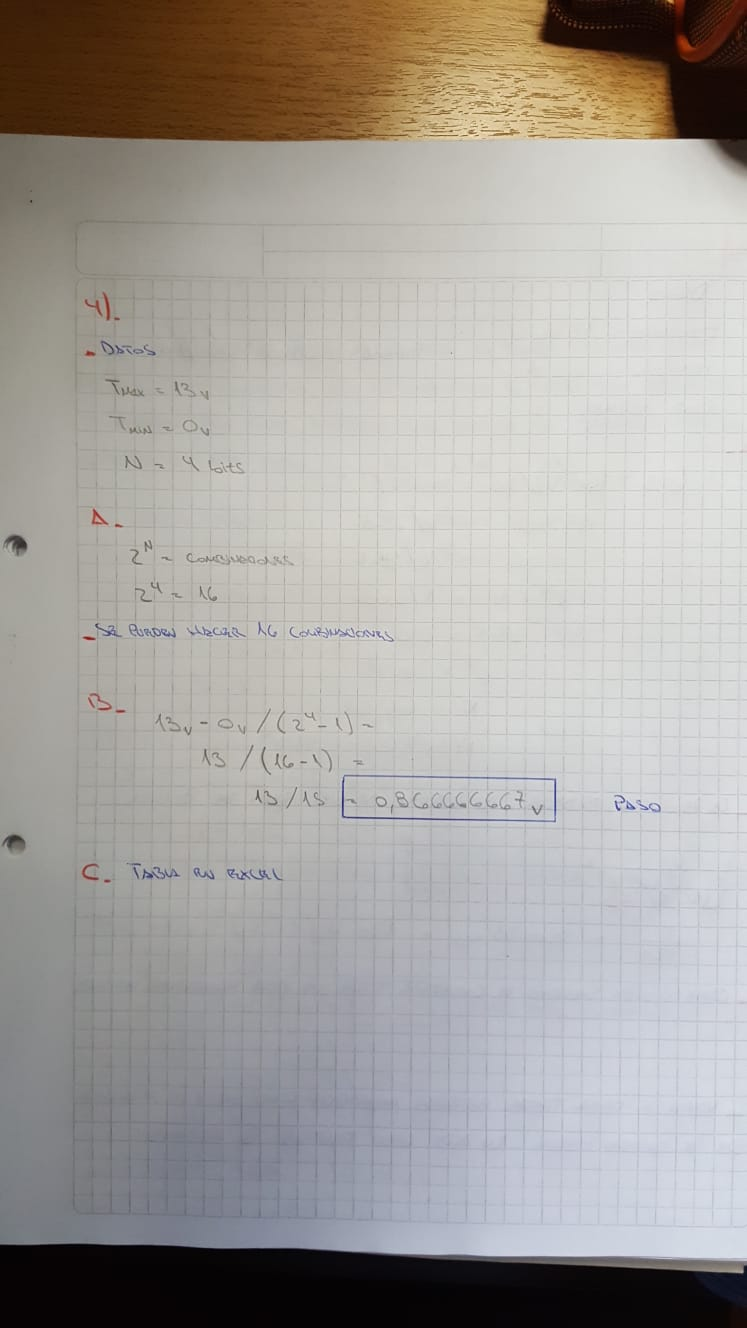 4).
- DATOS
TMAX = 13v
TMIN = 0v
N = 4 bits
A.
2^N = COMBINACIONES
2^4 = 16
- SE PUEDEN HACER 16 COMBINACIONES
B-
13v - 0v / (2^4 - 1) =
13 / (16 - 1) =
13 / 15 = 0,866666667v PASO
C. TABLA EN EXCEL